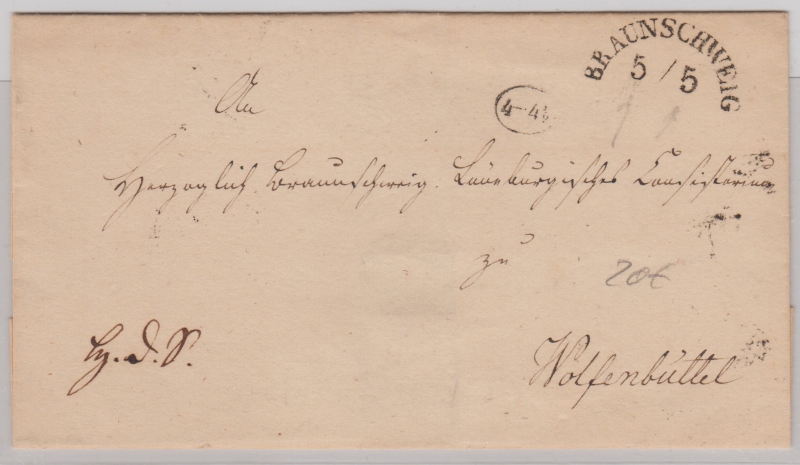 BRAUNSCHWEIG
5 / 5
4-4½
An
Herzoglich Braunschweig. Lüneburgisches Consistorium
zu
20€
Hz. D. S.
Wolfenbüttel